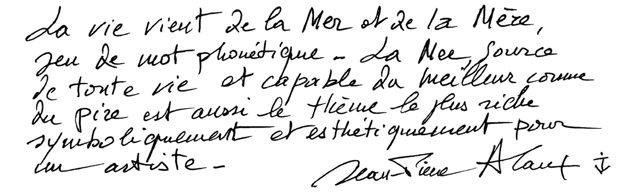 La vie vient de la Mer et de la Mère,
jeu de mot phonétique - La Mer, source
de toute vie et capable du meilleur comme
du pire est aussi le thème le plus riche
symboliquement et esthétiquement pour
un artiste -
Jean-Pierre Alaux